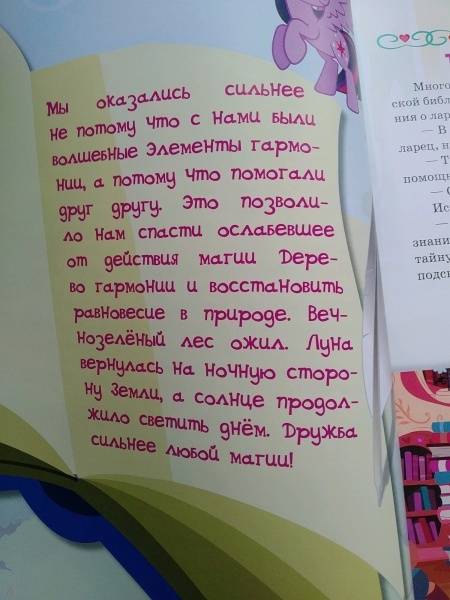 Мы оказались сильнее
не потому что с нами были
волшебные Элементы гармо-
нии, а потому что помогали
друг другу. Это позволи-
ло нам спасти ослабевшее
от действия магии Дере-
во гармонии и восстановить
равновесие в природе. Веч-
нозелёный лес ожил. Луна
вернулась на ночную сторо-
ну Земли, а солнце продол-
жило светить днём. Дружба
сильнее любой магии!
Много
ской библ
ния о лар
— В
ларец, н
— Т
помощь
— С
Ис
—
знани
тайну
подск